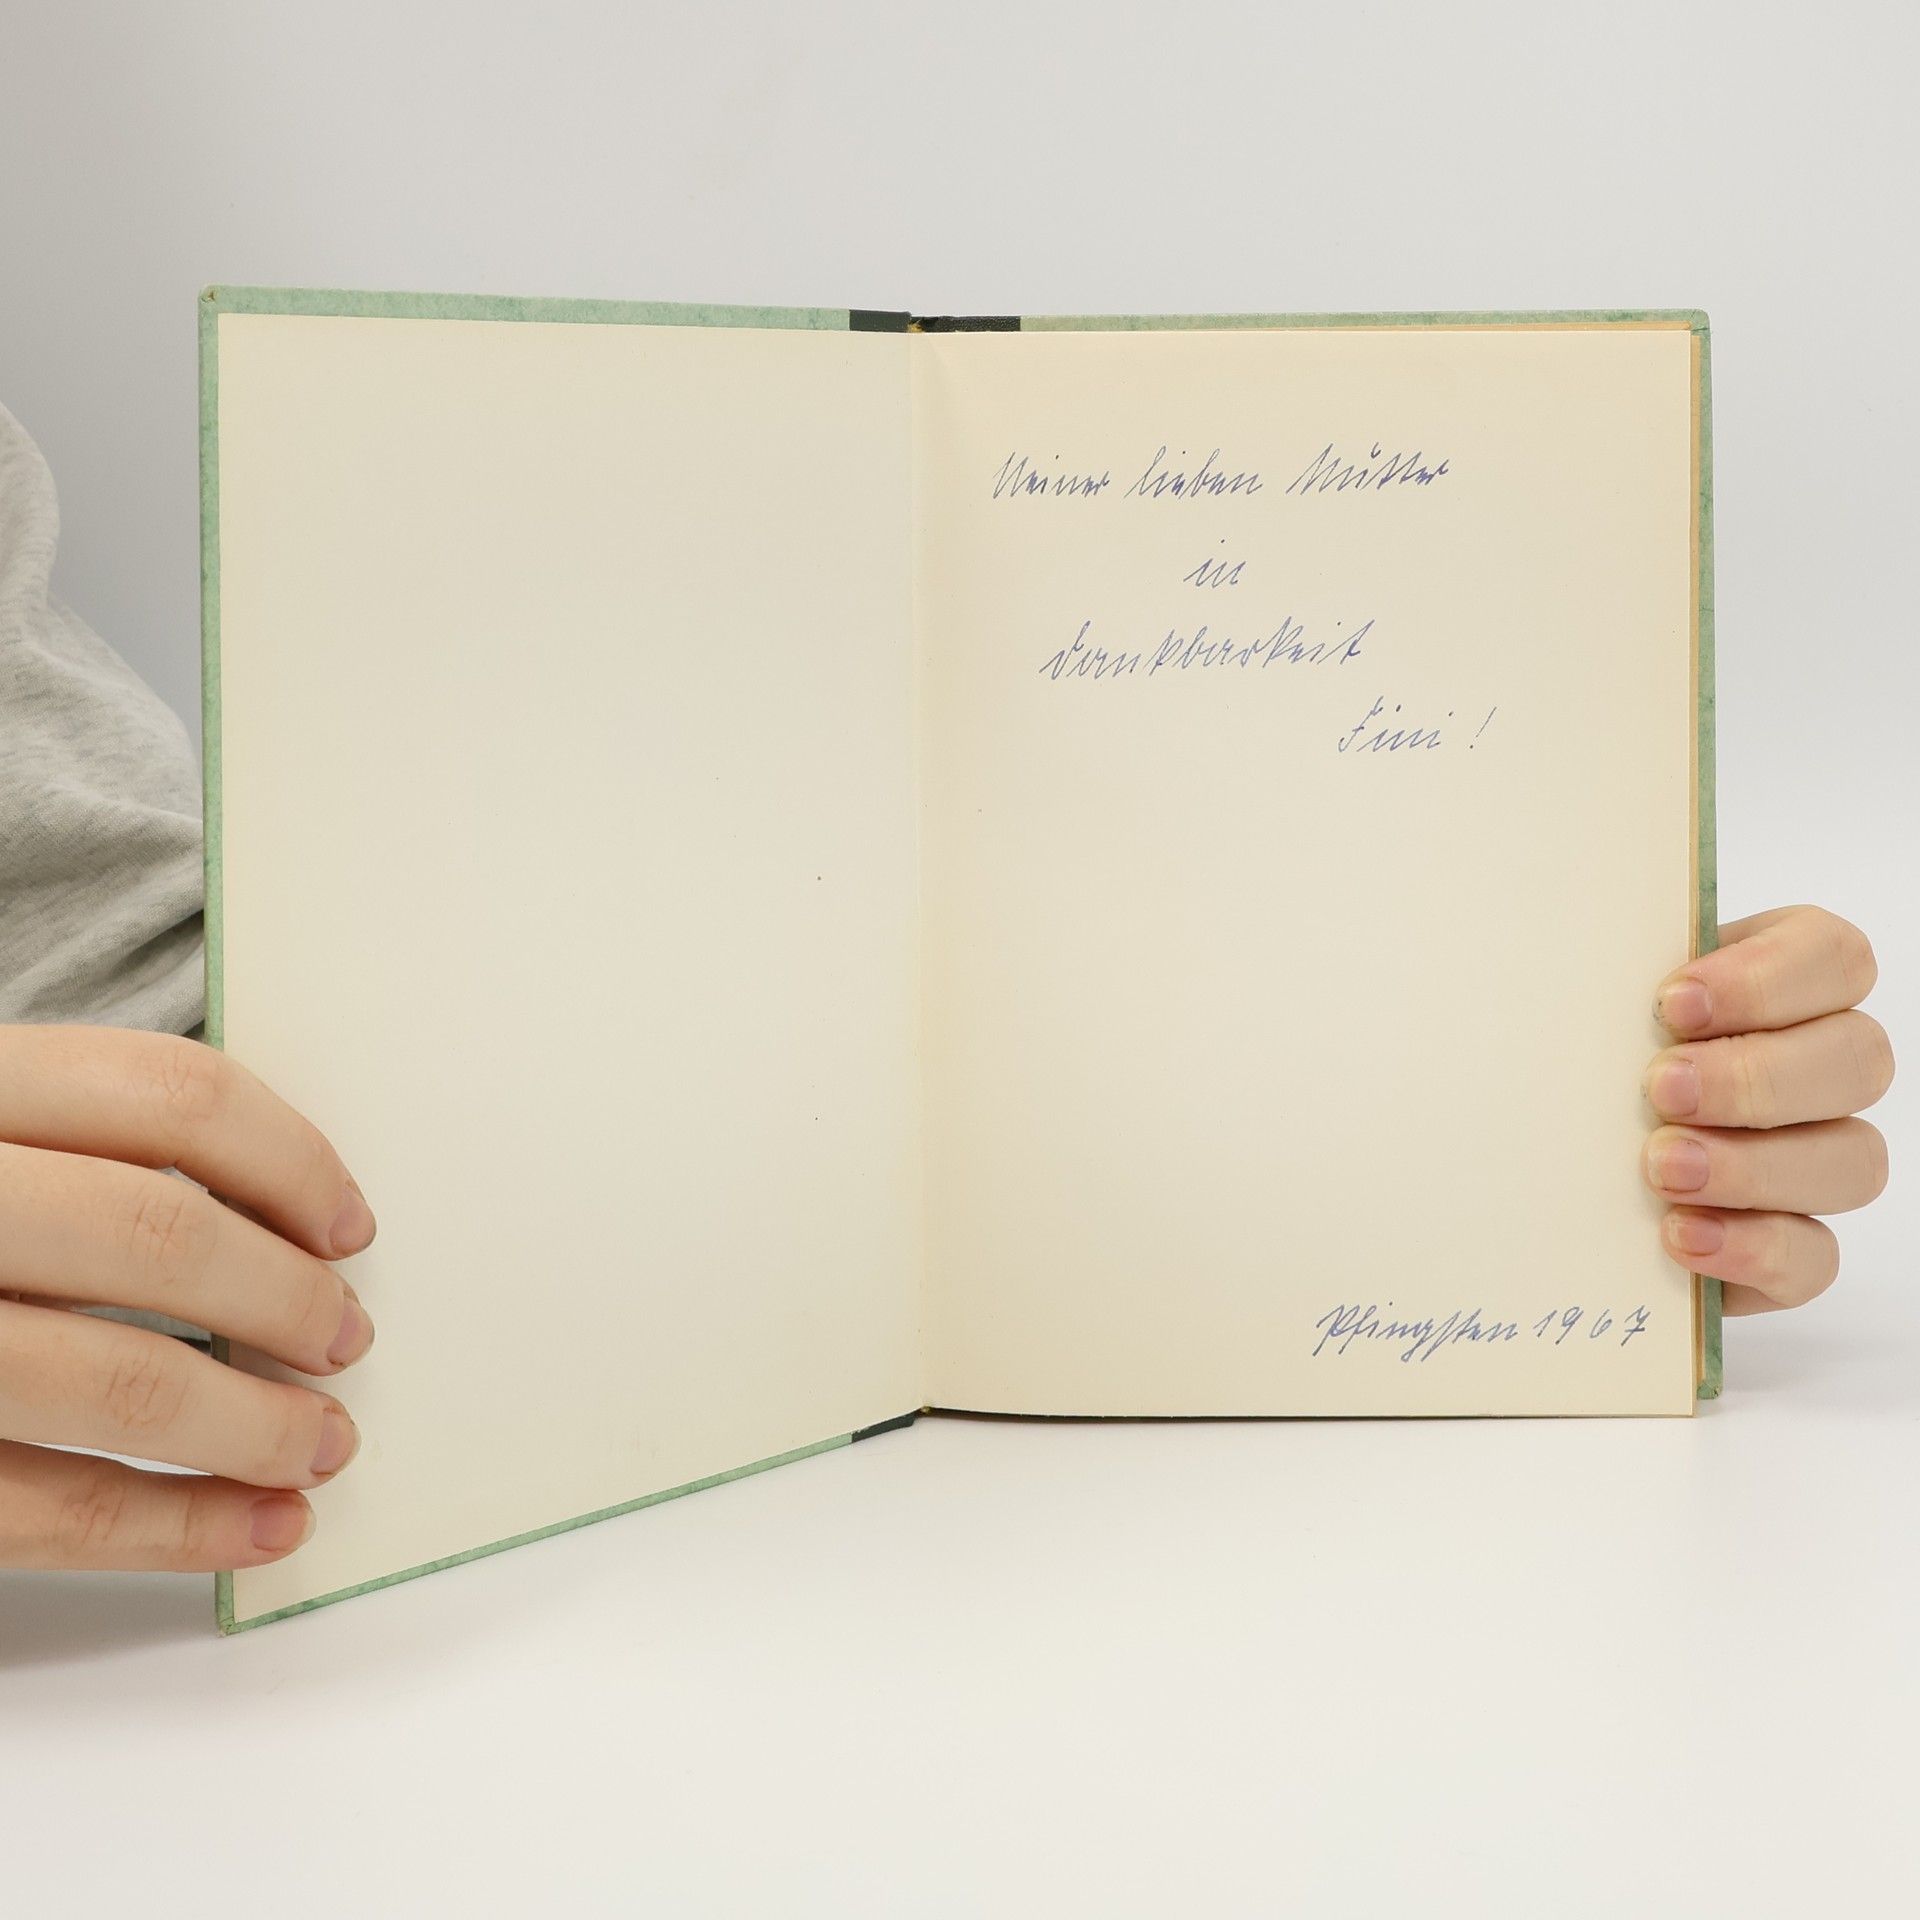 Meiner lieben Mutter
in
Dankbarkeit
Fini!
Pfingsten 1967